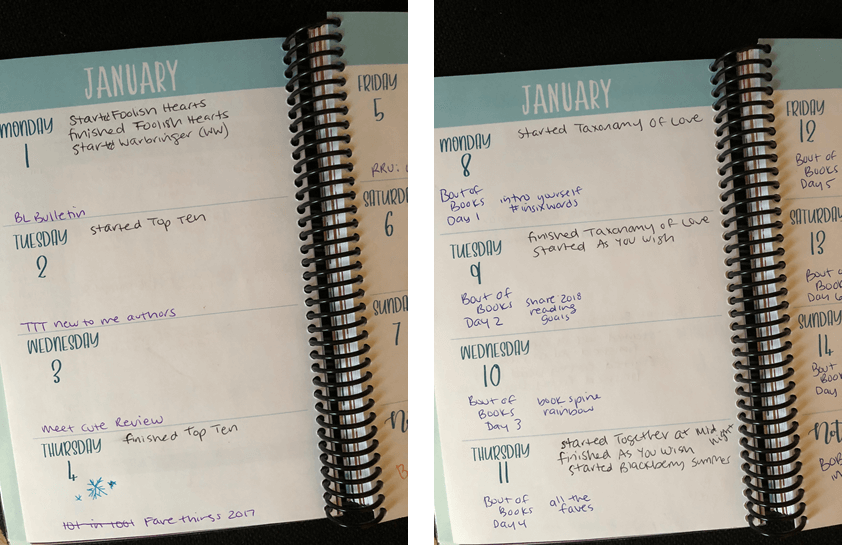 JANUARY
MONDAY
1
Started Foolish Hearts
finished Foolish Hearts
started Warbringer (WW)
BL Bulletin
TUESDAY
2
started Top Ten
TTT new to me authors
WEDNESDAY
3
meet cute Review
THURSDAY
4
finished Top Ten
101 in 1001 Fave things 2017
FRIDAY
5
RRU:
SATURD
6
SUNDA
7
JANUARY
MONDAY
8
started Taxonomy Of Love
Bout of
Books
Day 1
intro yourself
#insixwords
TUESDAY
9
finished Taxonomy of Love
started As You Wish
Bout of
Books
Day 2
share 2018
reading
goals
WEDNESDAY
10
Bout of
Books
Day 3
book spine
rainbow
THURSDAY
11
started Together at Midnight
finished As You Wish
started Blackberry Summer
Bout of
Books
Day 4
all the
faves
FRIDAY
12
Bout of
Books
Day 5
SATURDAY
13
Bout
Book
Day 6
SUNDAY
14
Bout
Book
Day
Not